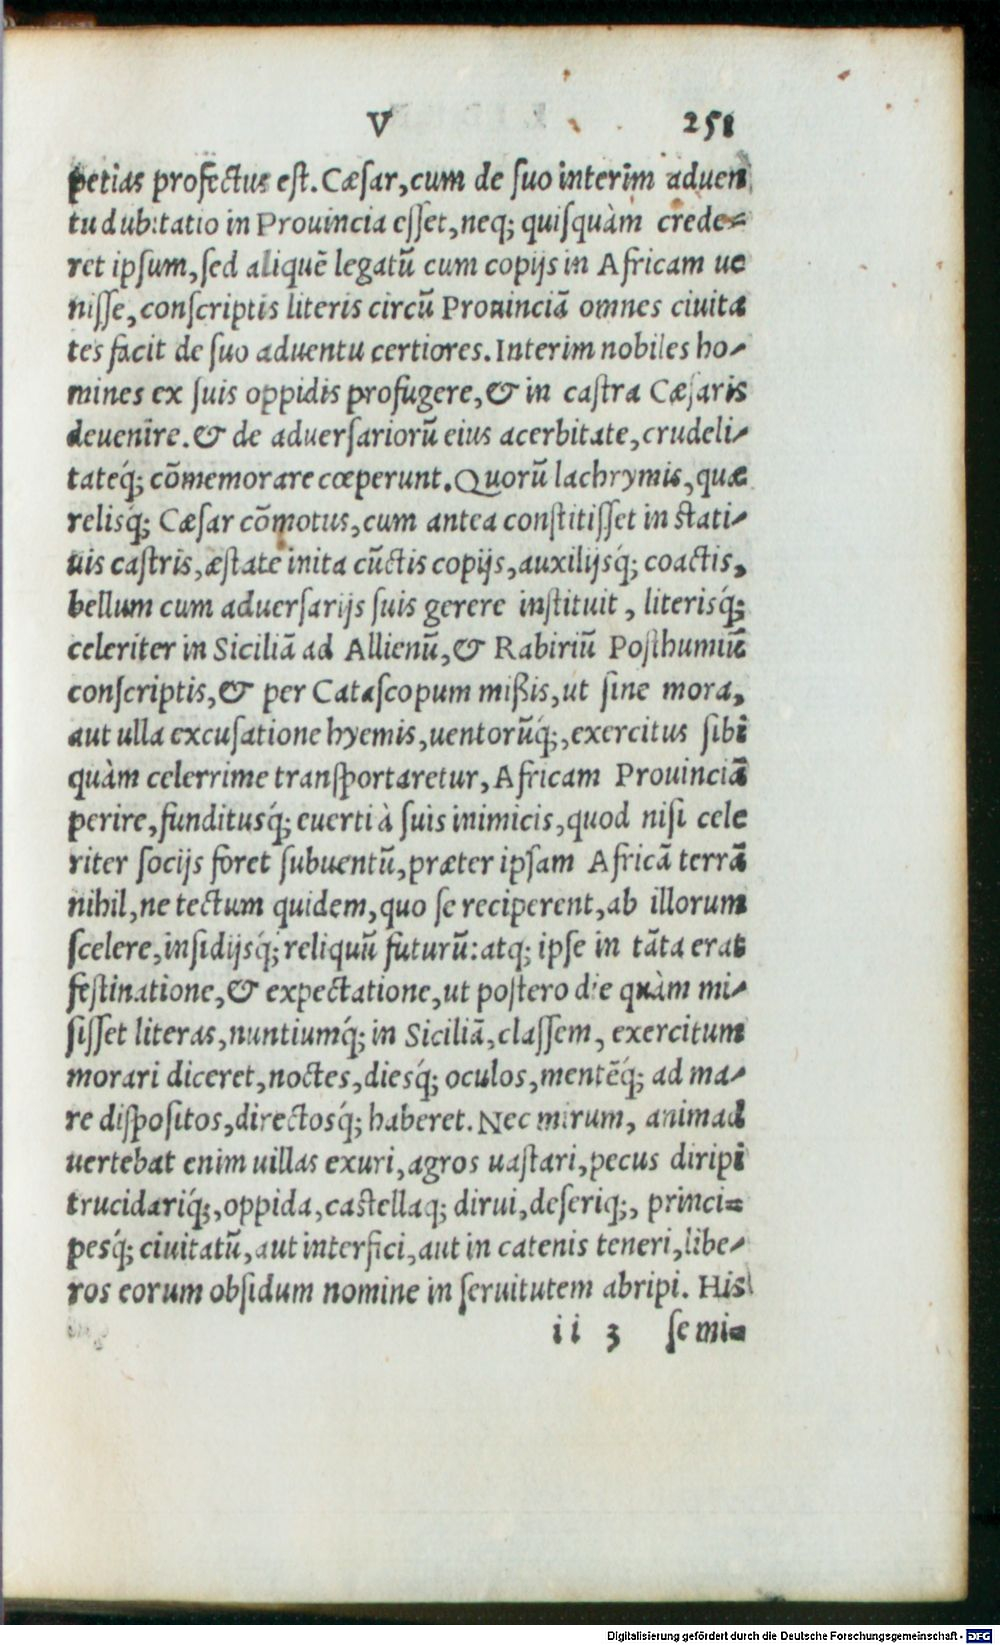 V 251
petias profectus est. Cæsar, cum de suo interim aduen
tu dubitatio in Prouincia esset, neq; quisquàm crede=
ret ipsum, sed aliquē legatū cum copijs in Africam ue
nisse, conscriptis literis circū Prouinciā omnes ciuita
tes facit de suo aduentu certiores. Interim nobiles ho-
mines ex suis oppidis profugere, & in castra Cæsaris
deuenire. & de aduersariorū eius acerbitate, crudeli-
tateq́; cōmemorare cœperunt. Quorū lachrymis, quæ
relisq́; Cæsar cōmotus, cum antea constitisset in stati-
uis castris, æstate inita cūctis copijs, auxilijsq́; coactis,
bellum cum aduersarijs suis gerere instituit, literisq́;
celeriter in Siciliā ad Allienū, & Rabiriū Posthumiū
conscriptis, & per Catascopum mißis, ut sine mora,
aut ulla excusatione hyemis, uentorūq́;, exercitus sibi
quàm celerrime transportaretur, Africam Prouinciā
perire, funditusq́; euerti à suis inimicis, quod nisi cele
riter socijs foret subuentū, præter ipsam Africā terrā
nihil, ne tectum quidem, quo se reciperent, ab illorum
scelere, insidijsq́; reliquū futurū: atq; ipse in tāta erat
festinatione, & expectatione, ut postero die quàm mi-
sisset literas, nuntiumq́; in Siciliā, classem, exercitum
morari diceret, noctes, diesq́; oculos, mentēq́; ad ma-
re dispositos, directosq́; haberet. Nec mirum, animad
uertebat enim uillas exuri, agros uastari, pecus diripi
trucidariq́;, oppida, castellaq; dirui, deseriq;, princi=
pesq́; ciuitatū, aut interfici, aut in catenis teneri, libe-
ros eorum obsidum nomine in seruitutem abripi. His
ii 3 se mi=
Digitalisierung gefördert durch die Deutsche Forschungsgemeinschaft - DFG